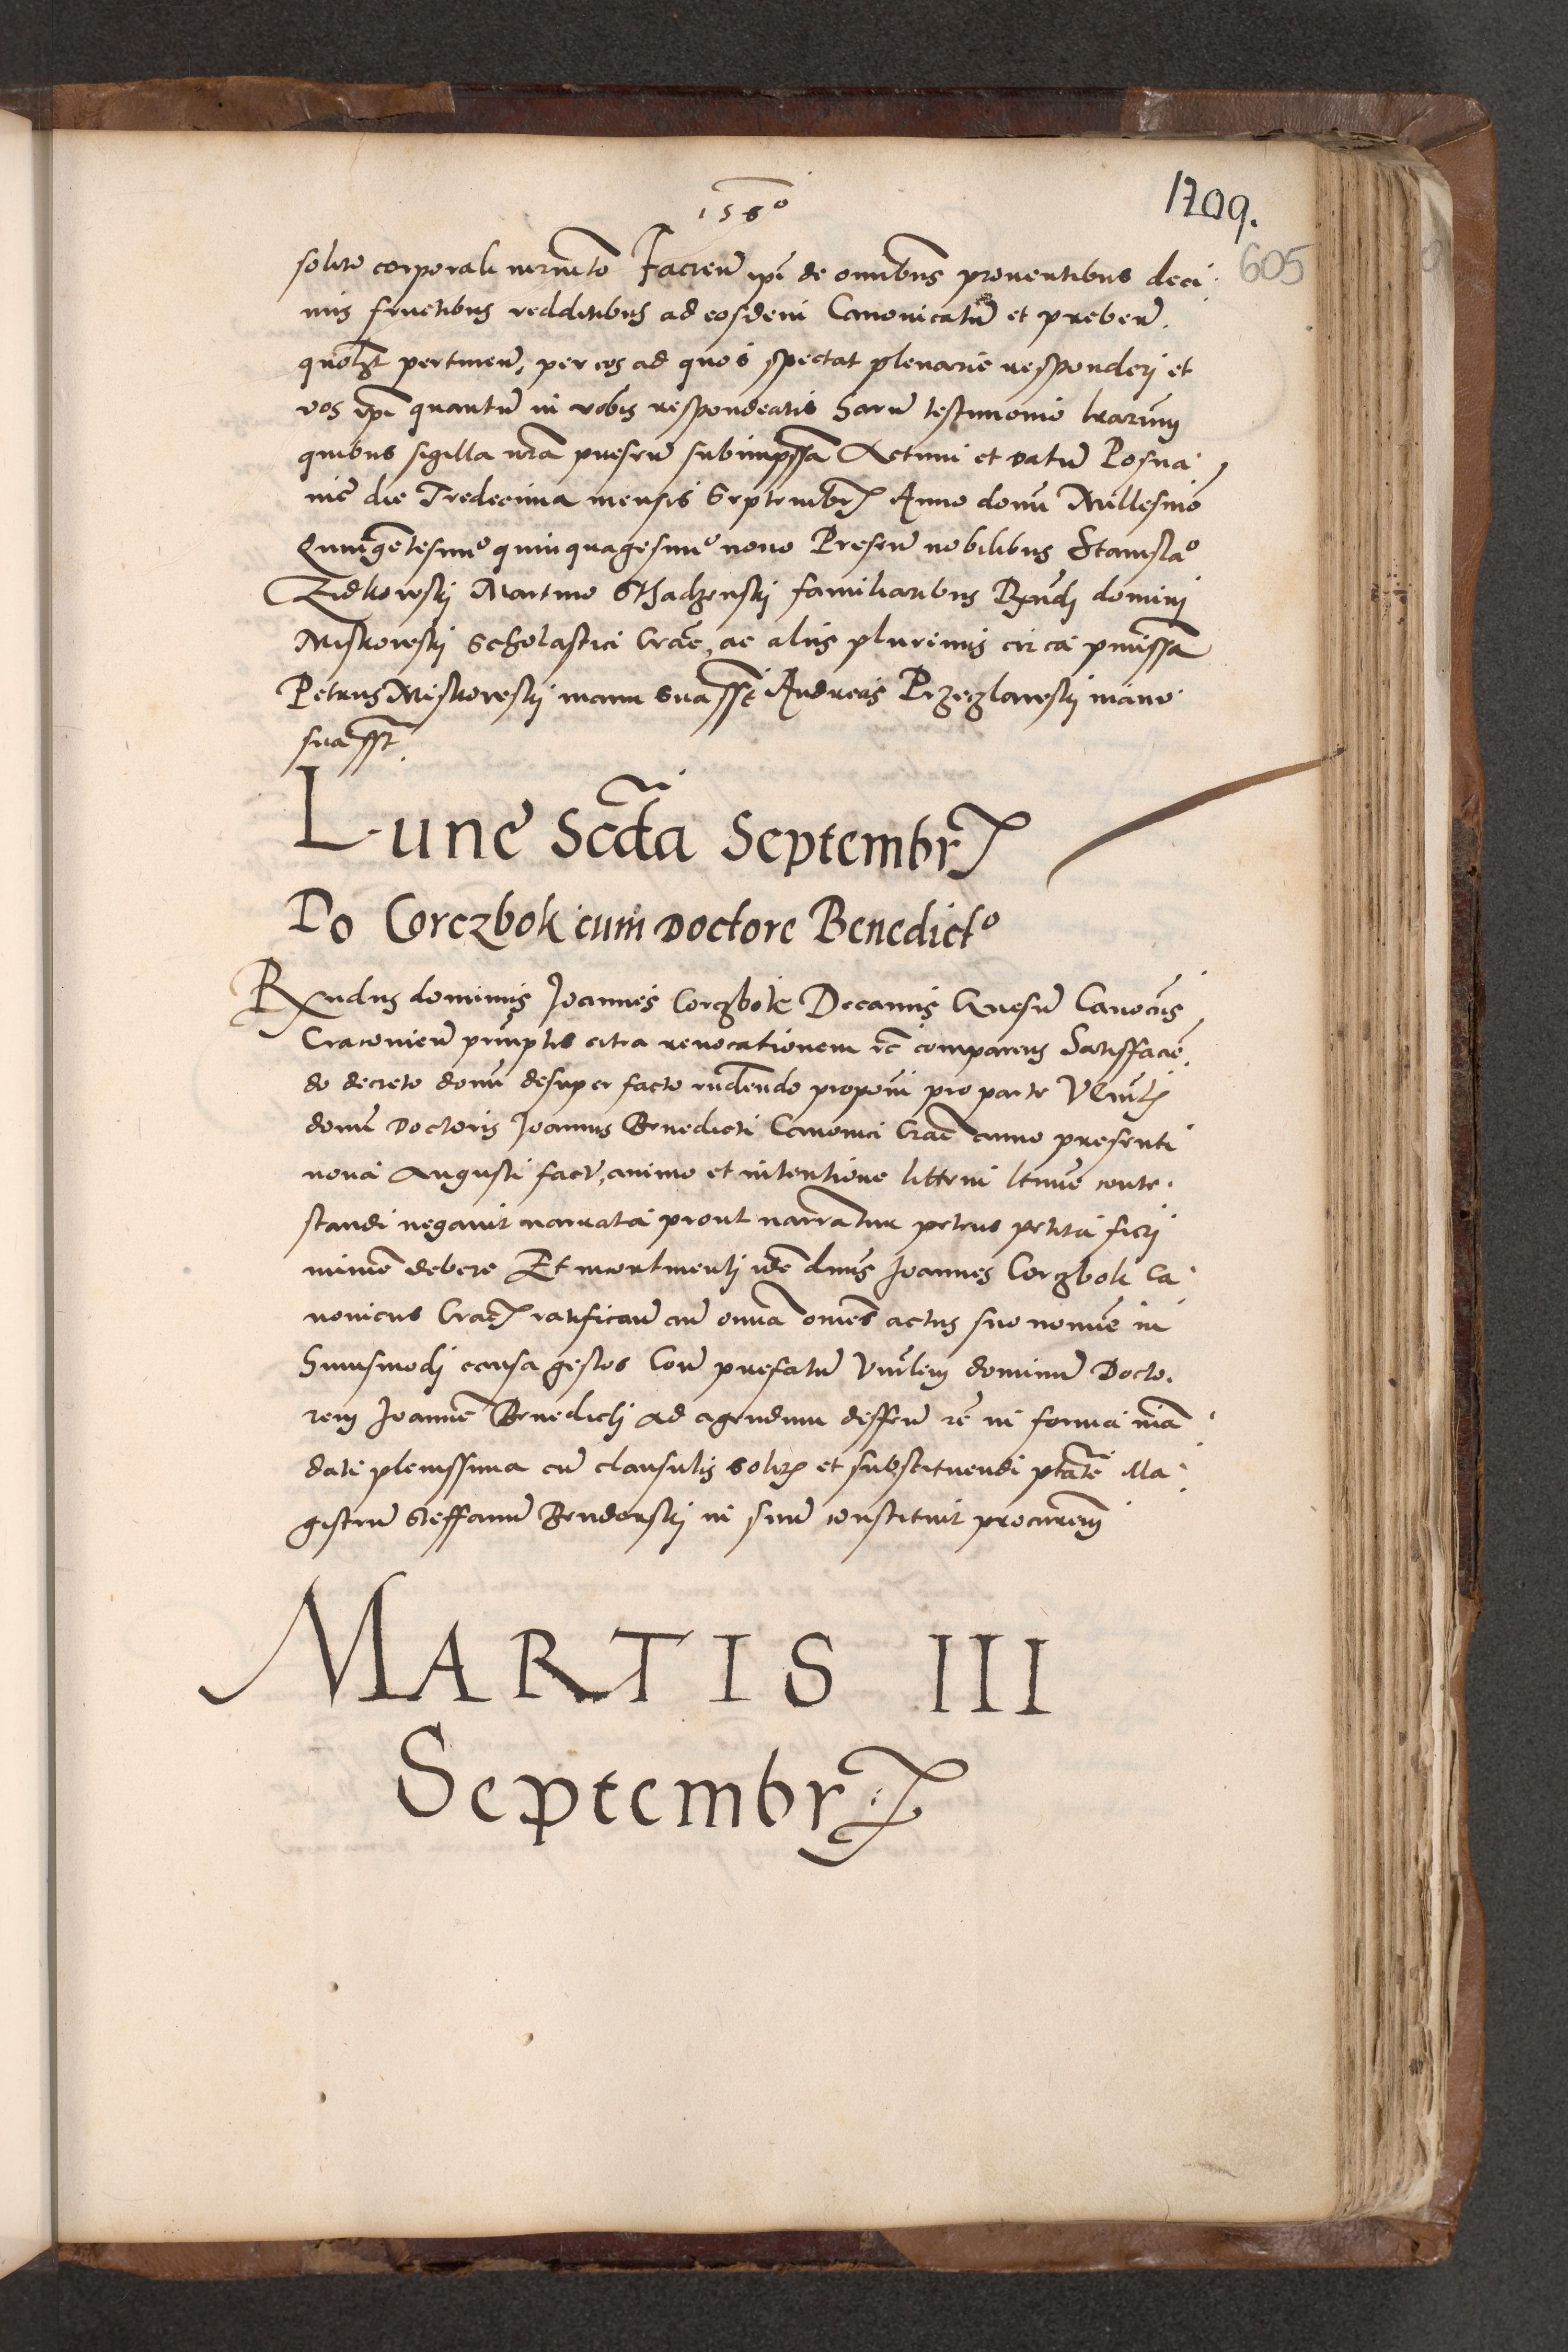 1560
1709.
605
solito corporali iuramto Facien ipi de omnibus proventibus deci
mis fructibus redditibus ad eosdem Canonicatu et preben
quolzt pertinen, per eos ad quos spectat plenarie responderi et
vos ipi quantu in vobis respondeatis Haru testimonio lrarum
quibus sigilla nra presen subimpssa Actum et datu Posna
nie die Tredecima mensis Septembr Anno domi Millesimo
Quingetesimo quinquagesimo nono Presen nobilibus Stanislao
Zidkowskj Martino Ghadzenskj familiaribus Rndj dominj
Miskowskj Scholastici Crac, ac aliis plurimis circa pmissa
Petrus Miskowskj manu sua sst Andreas Przeczlawskj manu
sua sst.
Lune Scda Septembr
Do Corczbok cum Doctore Benedicto
Rxndus dominus Joannes Corczbok Decanus Gnesn Canocus
Cracovien principlis citra revocationem rc comparens Satisfacie
do decreto domi desuper facto rndendo proponi pro parte Venlis
domi Doctoris Joannis Benedicti Canonici Crac anno presenti
nona Augusti fact, animo et intentione littem ltimue conte
standi negavit narrata prout narrantur petens petita fierj
minime debere Et incontinentj ide dnus Joannes Corczbok Ca
nonicus Crac ratificau cu omia omes actus suo nomine in
Huiusmodj causa gestos Coru prefatu Venlem dominu Docto
rem Joanne Benedictj ad agendum deffen rc in forma ma
dati plenissima cu clausulis solit et substituendi ptate Ma
gistru Steffanu Bendonskj in suu constituit procurem
MARTIS III
Septembr